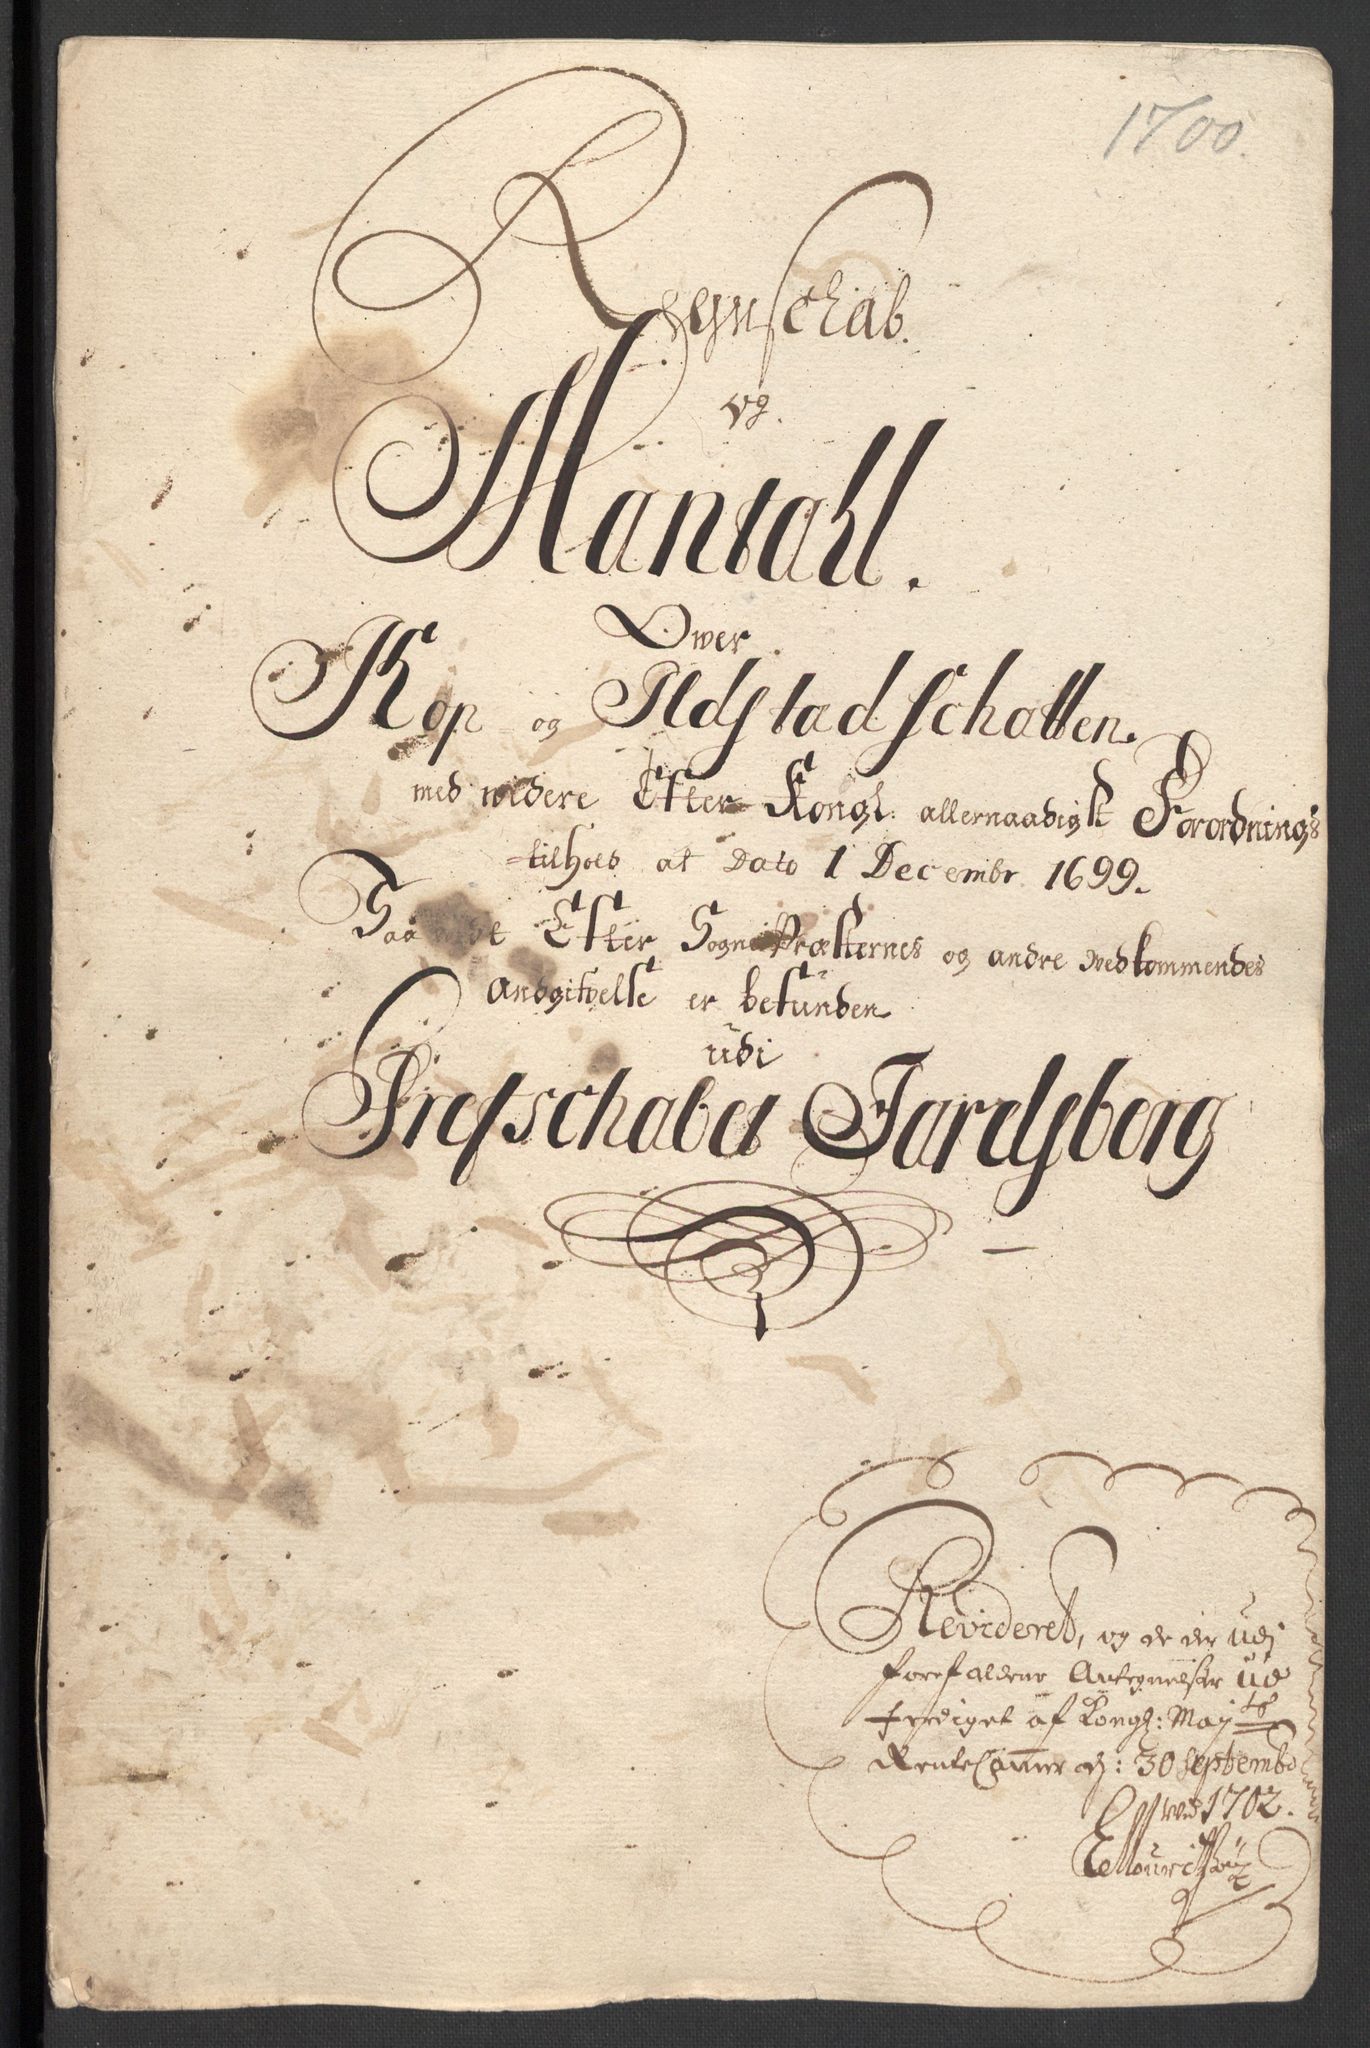 1700.
Regnschab.
og.
Mantall.
Ower
Kop og Ildstadschatten.
med widere Efter Kongl: allernaadigst Forordnings
tilhold af Dato 1 Decembr 1699.
Saawidt Efter SognePræsternes og andre vedkommendes
Andgifvelse er befunden
udi
Grefschabet Jarelsberg
Revideret, og de der udj
forefaldene Antegnelser ud
ferdiget af Kongl: May ts
RenteCammer d: 30 Septembr
1702.